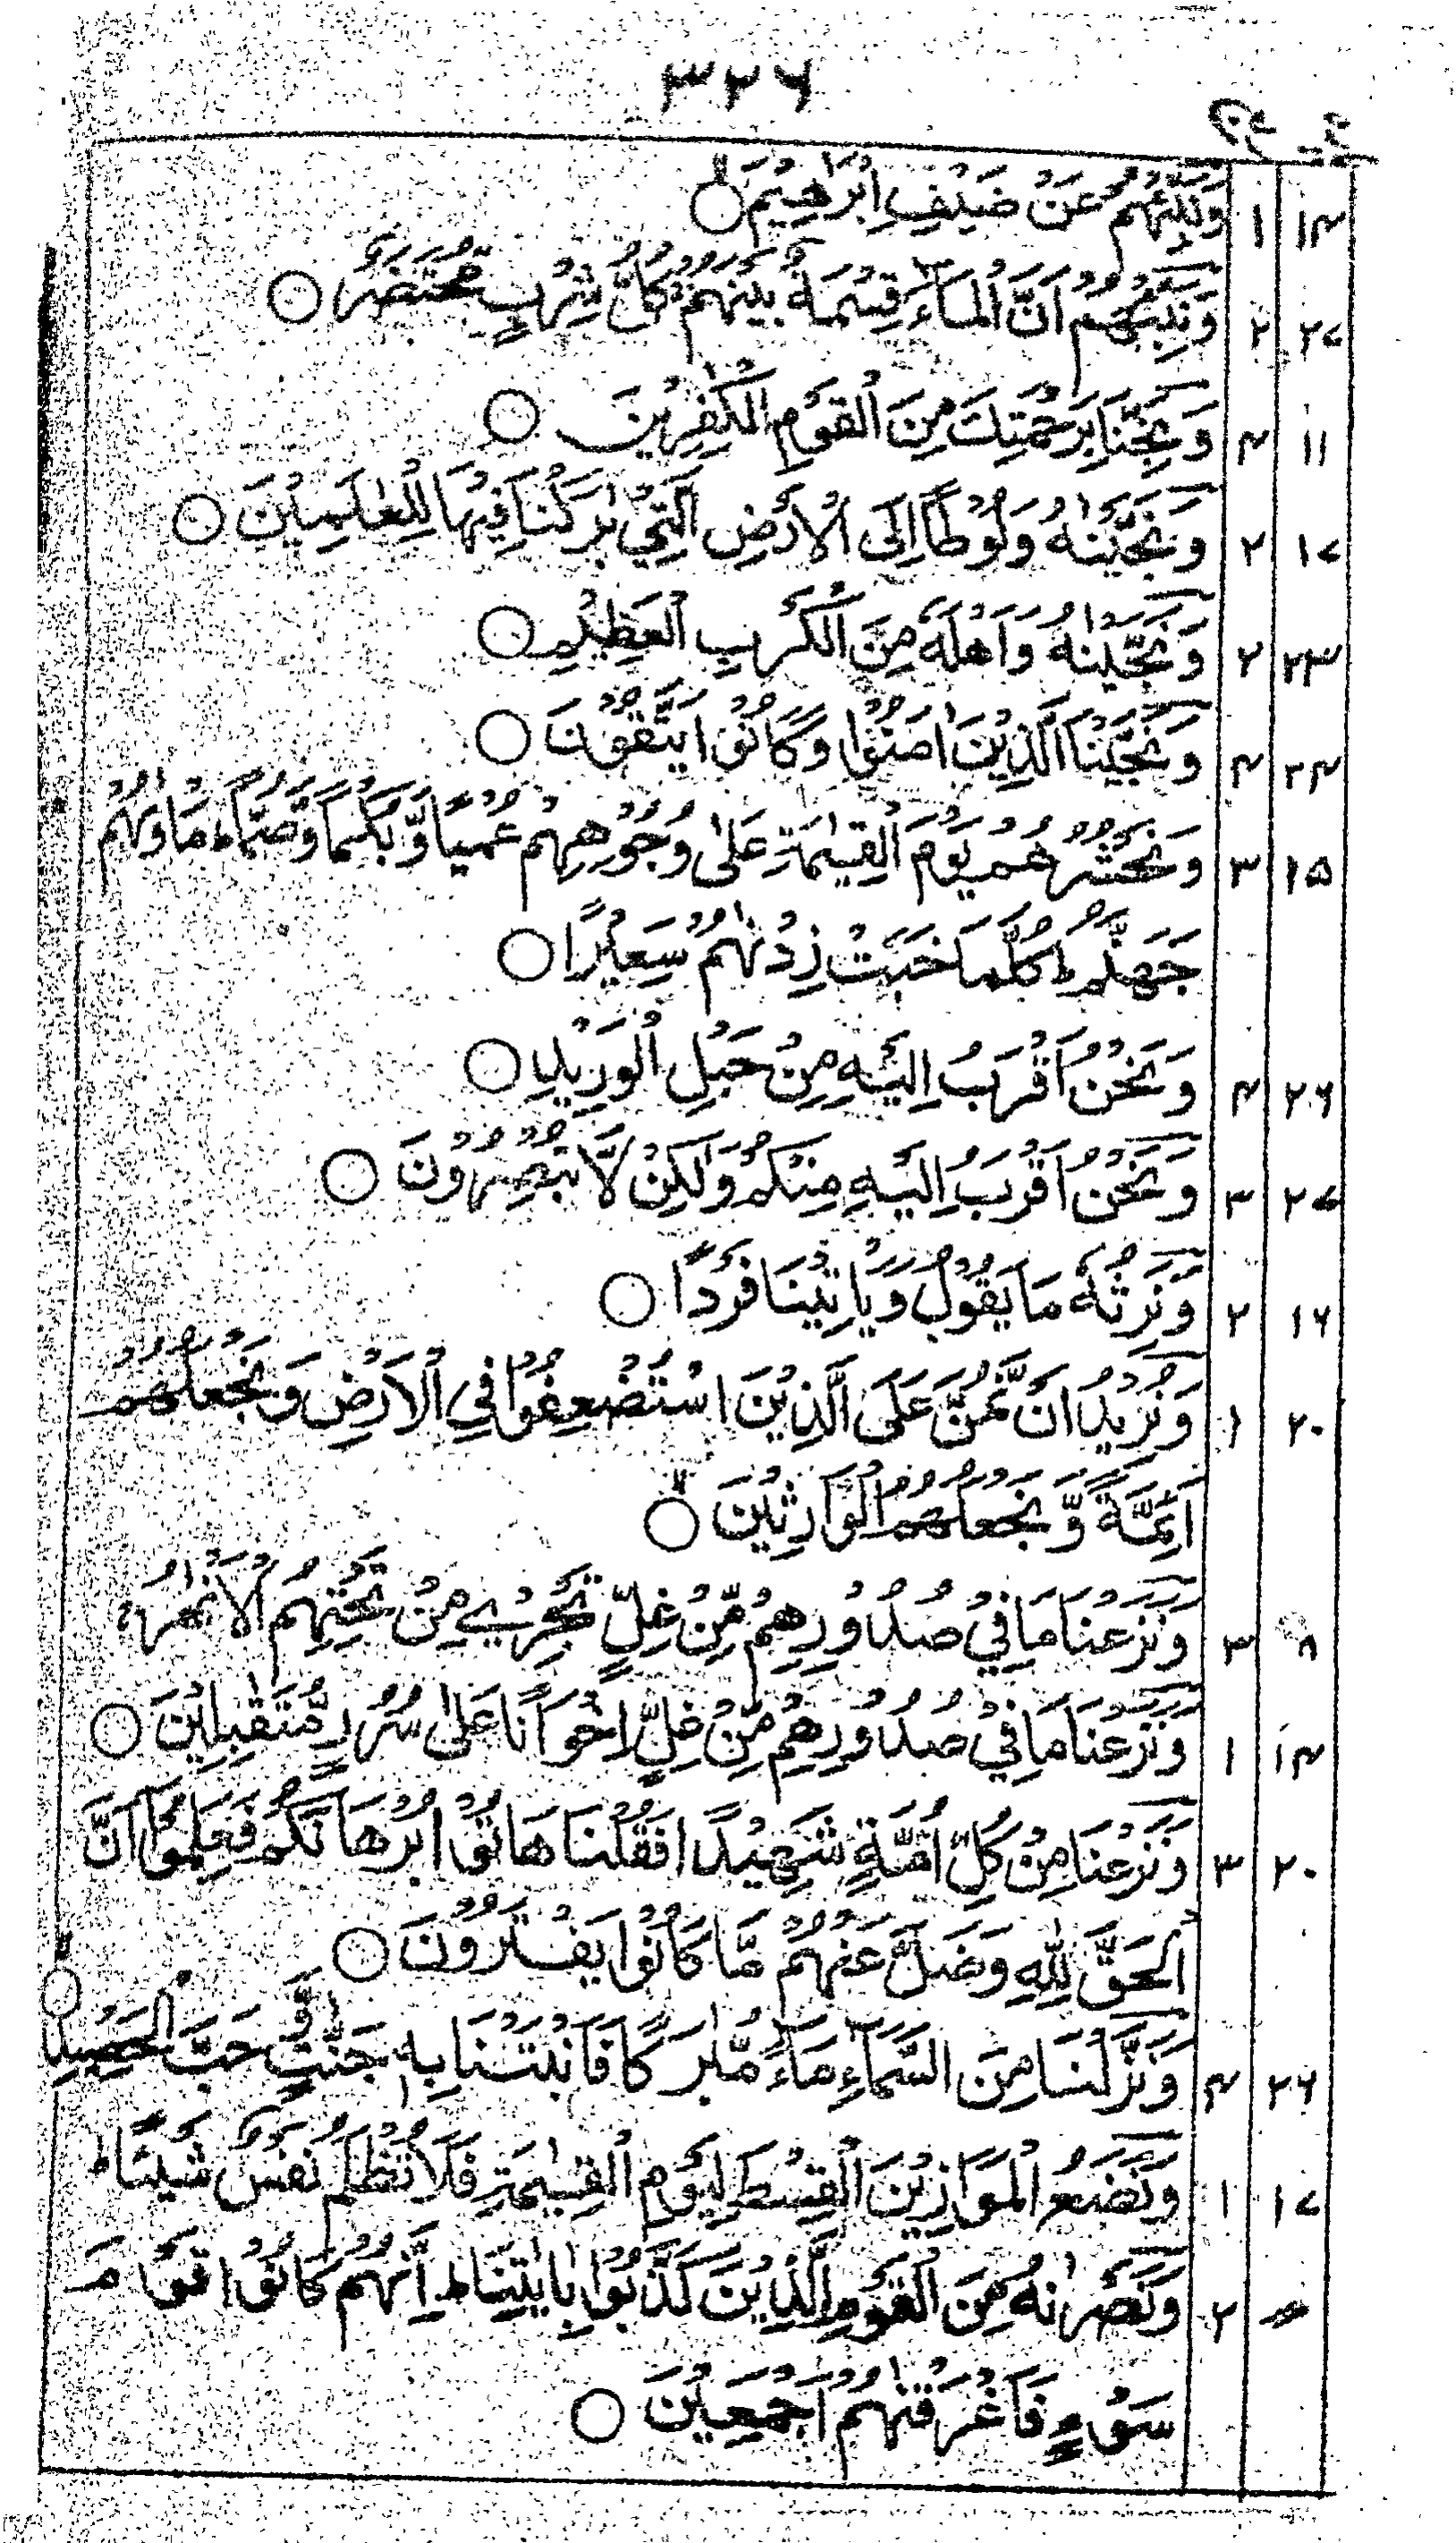 ۳۲۶
۱۴ ۱ وَنَبِّئْهُمْ عَنْ ضَيْفِ اِبْرٰهِيْمَ ○
۲۷ ۲ وَنَبِّئْهُمْ اَنَّ الْمَآءَ قِسْمَةٌۢ بَيْنَهُمْ كُلُّ شِرْبٍ مُّحْتَضَرٌ ○
۱۱ ۴ وَنَجِّنَا بِرَحْمَتِكَ مِنَ الْقَوْمِ الْكٰفِرِيْنَ ○
۱۷ ۲ وَنَجَّيْنٰهُ وَلُوْطًا اِلَى الْاَرْضِ الَّتِيْ بٰرَكْنَا فِيْهَا لِلْعٰلَمِيْنَ ○
۲۳ ۲ وَنَجَّيْنٰهُ وَاَهْلَهٗ مِنَ الْكَرْبِ الْعَظِيْمِ ○
۲۴ ۴ وَنَجَّيْنَا الَّذِيْنَ اٰمَنُوْا وَكَانُوْا يَتَّقُوْنَ ○
۱۵ ۳ وَنَحْشُرُهُمْ يَوْمَ الْقِيٰمَةِ عَلٰى وُجُوْهِهِمْ عُمْيًا وَّبُكْمًا وَّصُمًّا ط مَاْوٰىهُمْ
جَهَنَّمُ ط كُلَّمَا خَبَتْ زِدْنٰهُمْ سَعِيْرًا ○
۲۶ ۴ وَنَحْنُ اَقْرَبُ اِلَيْهِ مِنْ حَبْلِ الْوَرِيْدِ ○
۲۷ ۳ وَنَحْنُ اَقْرَبُ اِلَيْهِ مِنْكُمْ وَلٰكِنْ لَّا تُبْصِرُوْنَ ○
۱۶ ۲ وَّنَرِثُهٗ مَا يَقُوْلُ وَيَاْتِيْنَا فَرْدًا ○
۲۰ ۱ وَنُرِيْدُ اَنْ نَّمُنَّ عَلَى الَّذِيْنَ اسْتُضْعِفُوْا فِي الْاَرْضِ وَنَجْعَلَهُمْ
اَئِمَّةً وَّنَجْعَلَهُمُ الْوٰرِثِيْنَ ○
۸ ۳ وَنَزَعْنَا مَا فِيْ صُدُوْرِهِمْ مِّنْ غِلٍّ تَجْرِيْ مِنْ تَحْتِهِمُ الْاَنْهٰرُ
۱۴ ۱ وَنَزَعْنَا مَا فِيْ صُدُوْرِهِمْ مِّنْ غِلٍّ اِخْوَانًا عَلٰى سُرُرٍ مُّتَقٰبِلِيْنَ ○
۲۰ ۳ وَنَزَعْنَا مِنْ كُلِّ اُمَّةٍ شَهِيْدًا فَقُلْنَا هَاتُوْا بُرْهَانَكُمْ فَعَلِمُوْا اَنَّ
الْحَقَّ لِلّٰهِ وَضَلَّ عَنْهُمْ مَّا كَانُوْا يَفْتَرُوْنَ ○
۲۶ ۴ وَنَزَّلْنَا مِنَ السَّمَآءِ مَآءً مُّبٰرَكًا فَاَنْبَتْنَا بِهٖ جَنّٰتٍ وَّحَبَّ الْحَصِيْدِ ○
۱۷ ۱ وَنَضَعُ الْمَوَازِيْنَ الْقِسْطَ لِيَوْمِ الْقِيٰمَةِ فَلَا تُظْلَمُ نَفْسٌ شَيْئًا ط
۲ وَنَصَرْنٰهُ مِنَ الْقَوْمِ الَّذِيْنَ كَذَّبُوْا بِاٰيٰتِنَا ط اِنَّهُمْ كَانُوْا قَوْمَ
سَوْءٍ فَاَغْرَقْنٰهُمْ اَجْمَعِيْنَ ○